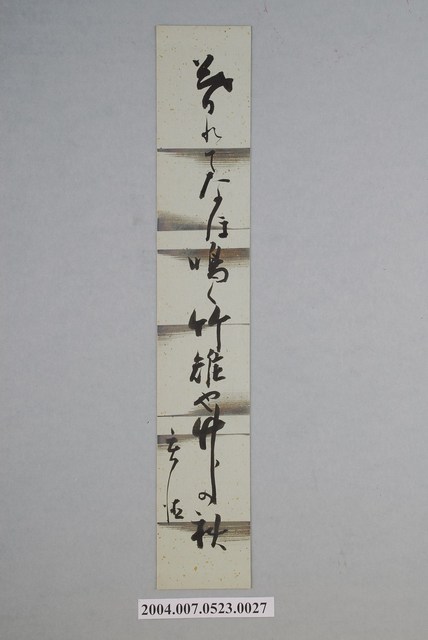 暮れてなほ鳴く竹雞や竹の秋
2004.007.0523.0027